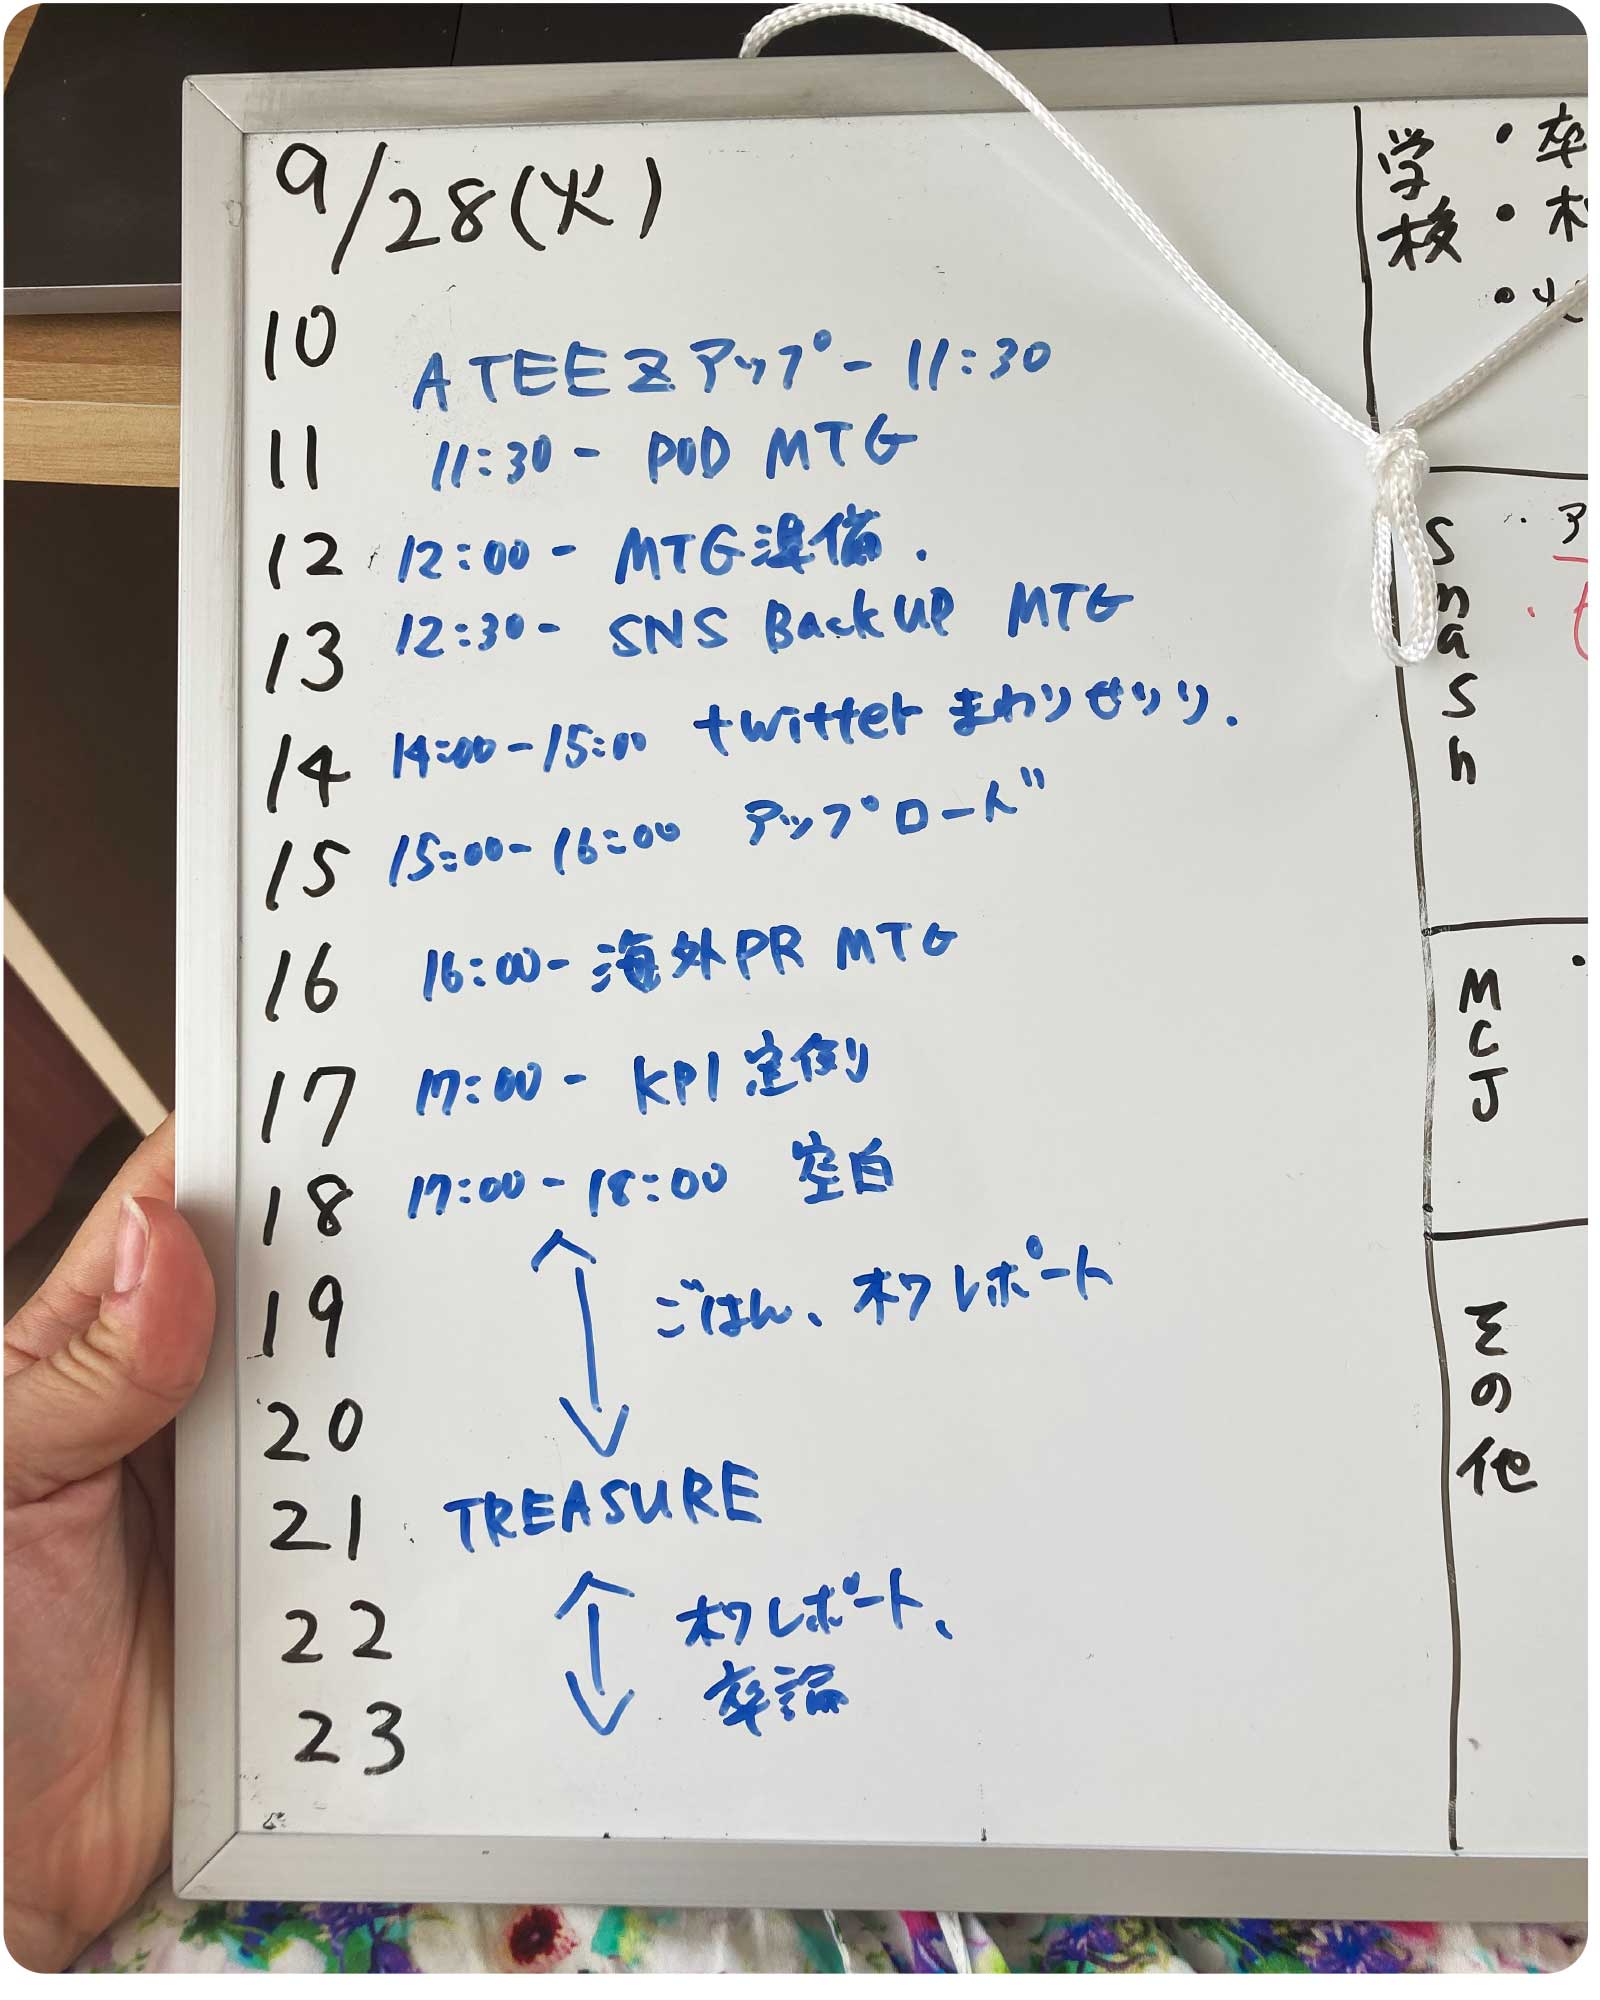 9/28(火)
10
ATEEZアップ - 11:30
11
11:30 - POD MTG
12
12:00 - MTG準備.
13
12:30 - SNS Back UP MTG
14
14:00 - 15:00 twitter まわりせりり.
15
15:00 - 16:00 アップロード
16
16:00 - 海外PR MTG
17
17:00 - KPI 定例
18
17:00 - 18:00 空白
19
ごはん、木7レポート
20
21
TREASURE
22
木7レポート、
23
卒論
学校
・卒
・木
Smash
・ア
MCJ
その他